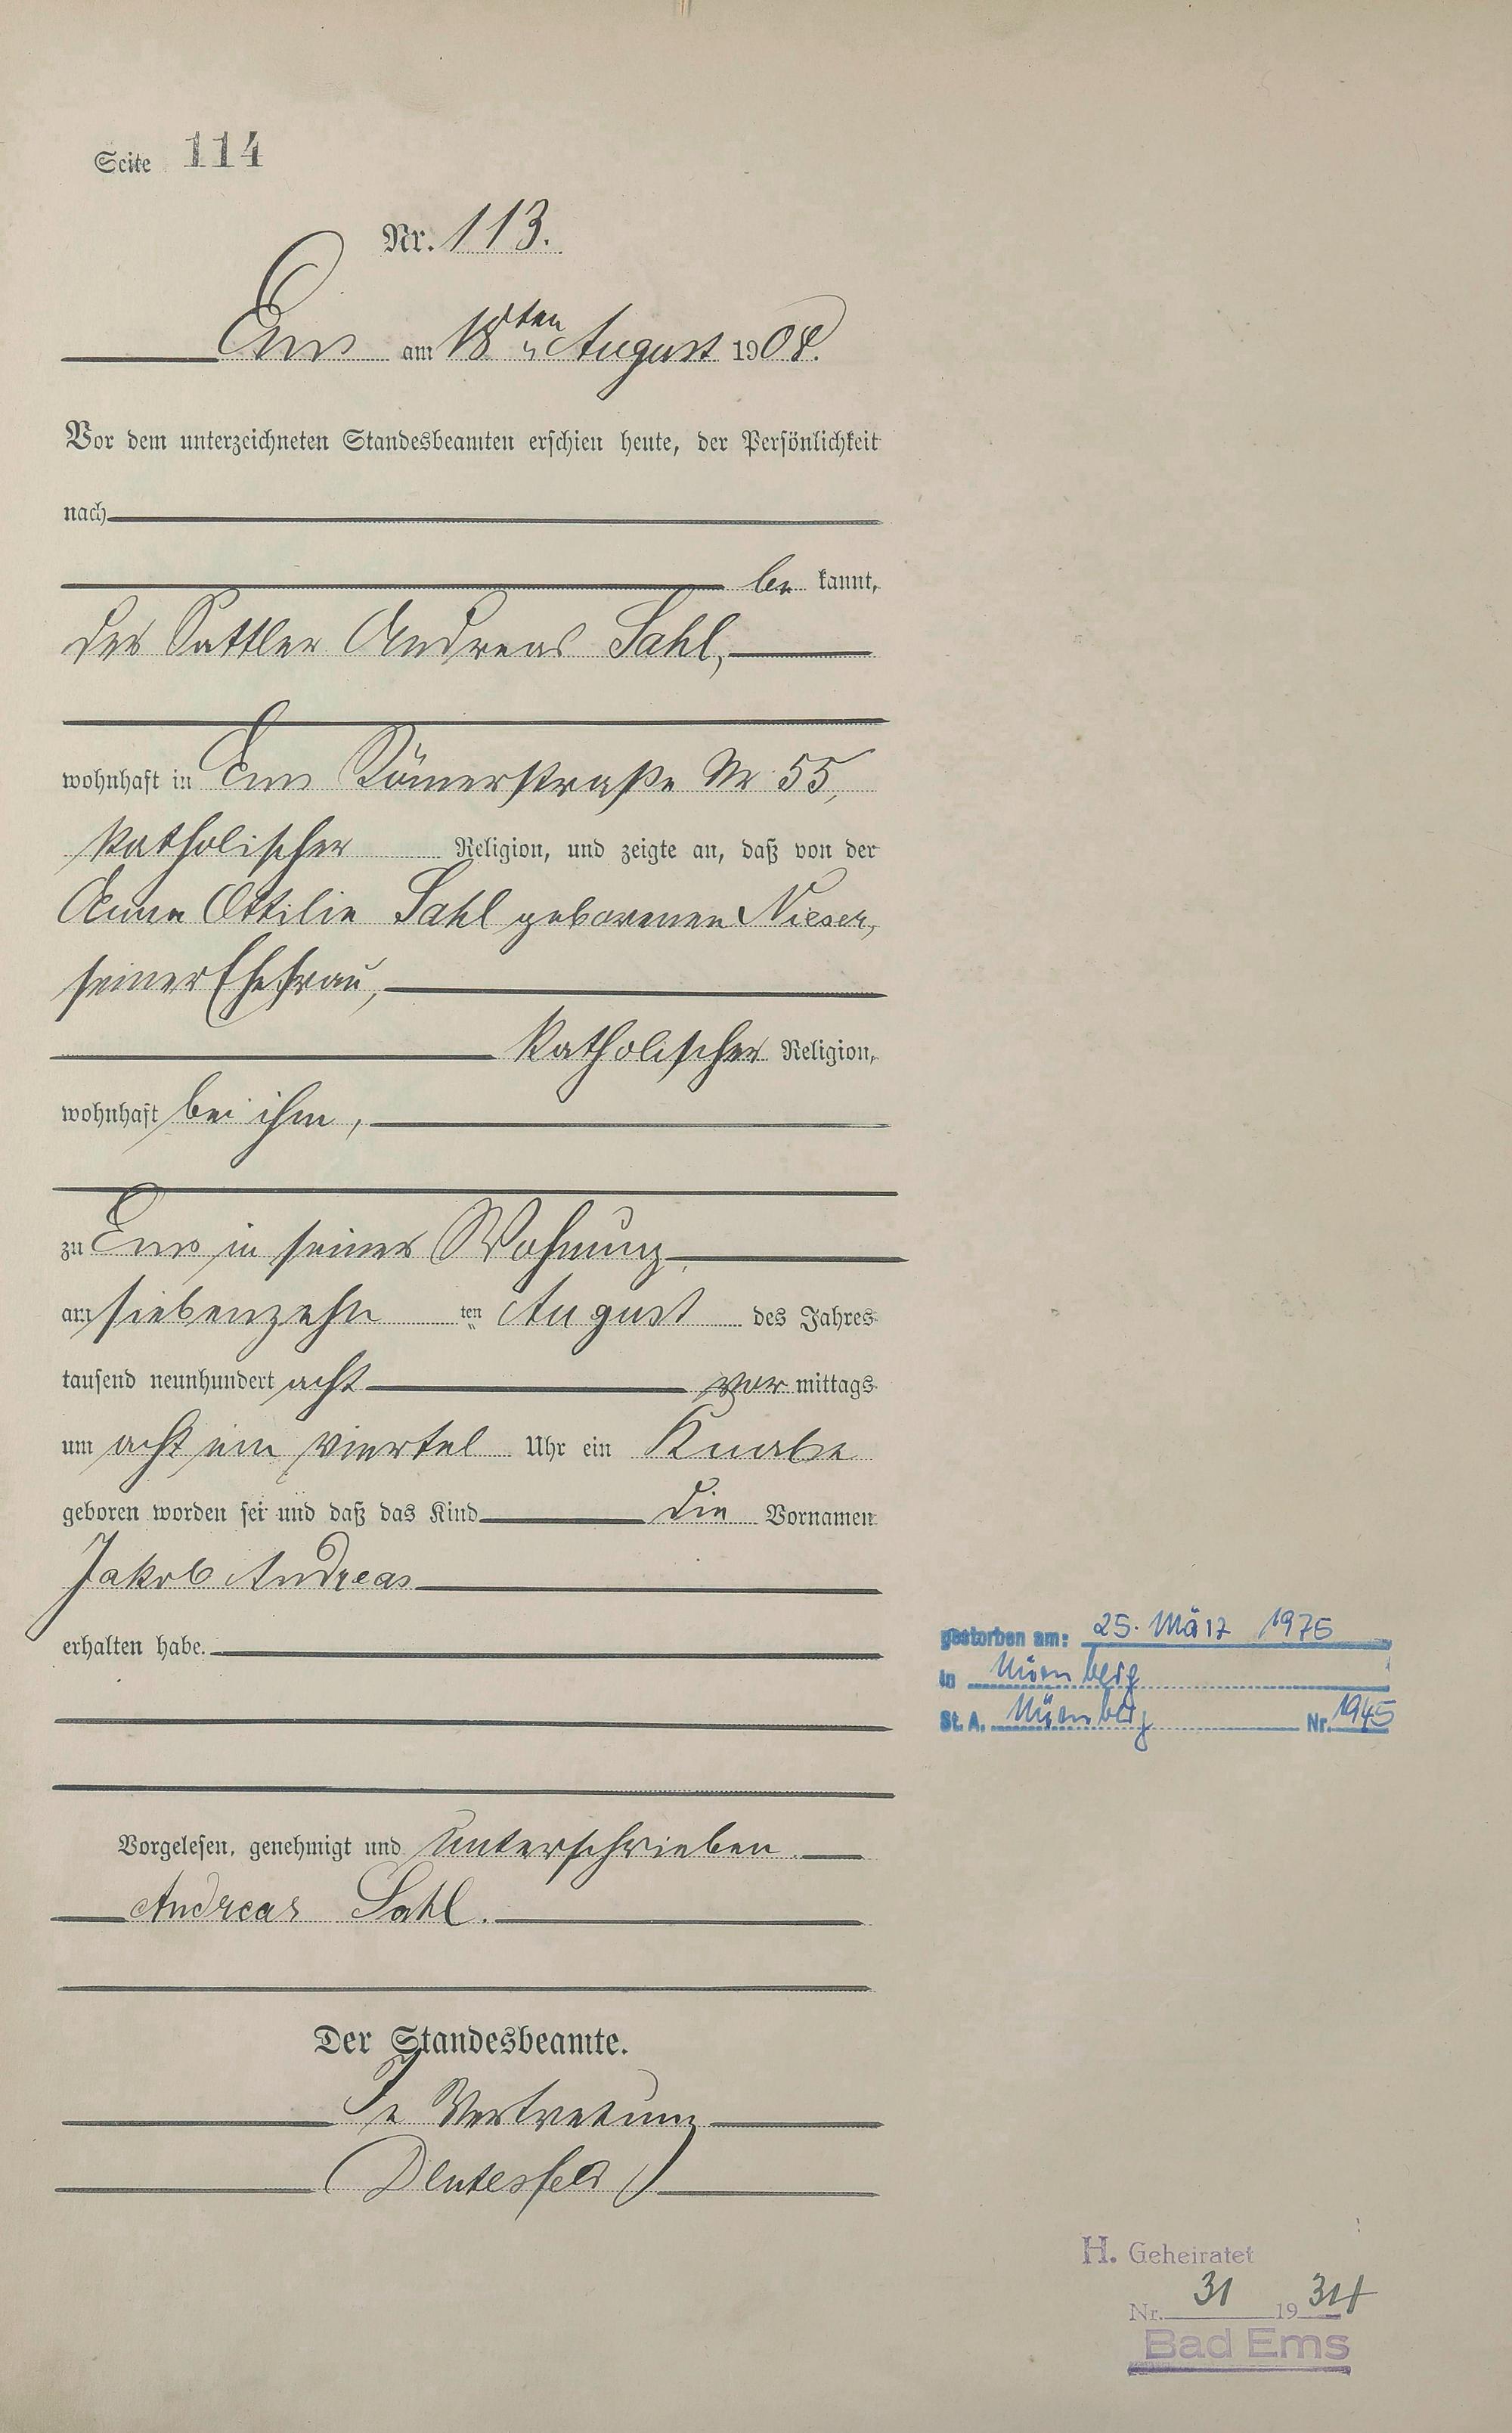 Seite 114
Nr. 113.
Ems am 18ten August 1908.
Vor dem unterzeichneten Standesbeamten erschien heute, der Persönlichkeit
nach
be kannt,
der Sattler Andreas Sahl,
wohnhaft in Ems Römerstraße Nr 55,
katholischer Religion, und zeigte an, daß von der
Anna Ottilie Sahl geborenen Nieser,
seiner Ehefrau,
katholischer Religion,
wohnhaft bei ihm,
zu Ems in seiner Wohnung
am siebenzehn ten August des Jahres
tausend neunhundert acht vor mittags
um acht ein viertel Uhr ein Knabe
geboren worden sei und daß das Kind die Vornamen
Jakob Andreas
erhalten habe.
gestorben am: 25. März 1975
in Nürnberg
St. A. Nürnberg Nr. 1945
Vorgelesen, genehmigt und unterschrieben.
Andreas Sahl.
Der Standesbeamte.
In Vertretung
H. Geheiratet
Nr. 31 1934
Bad Ems